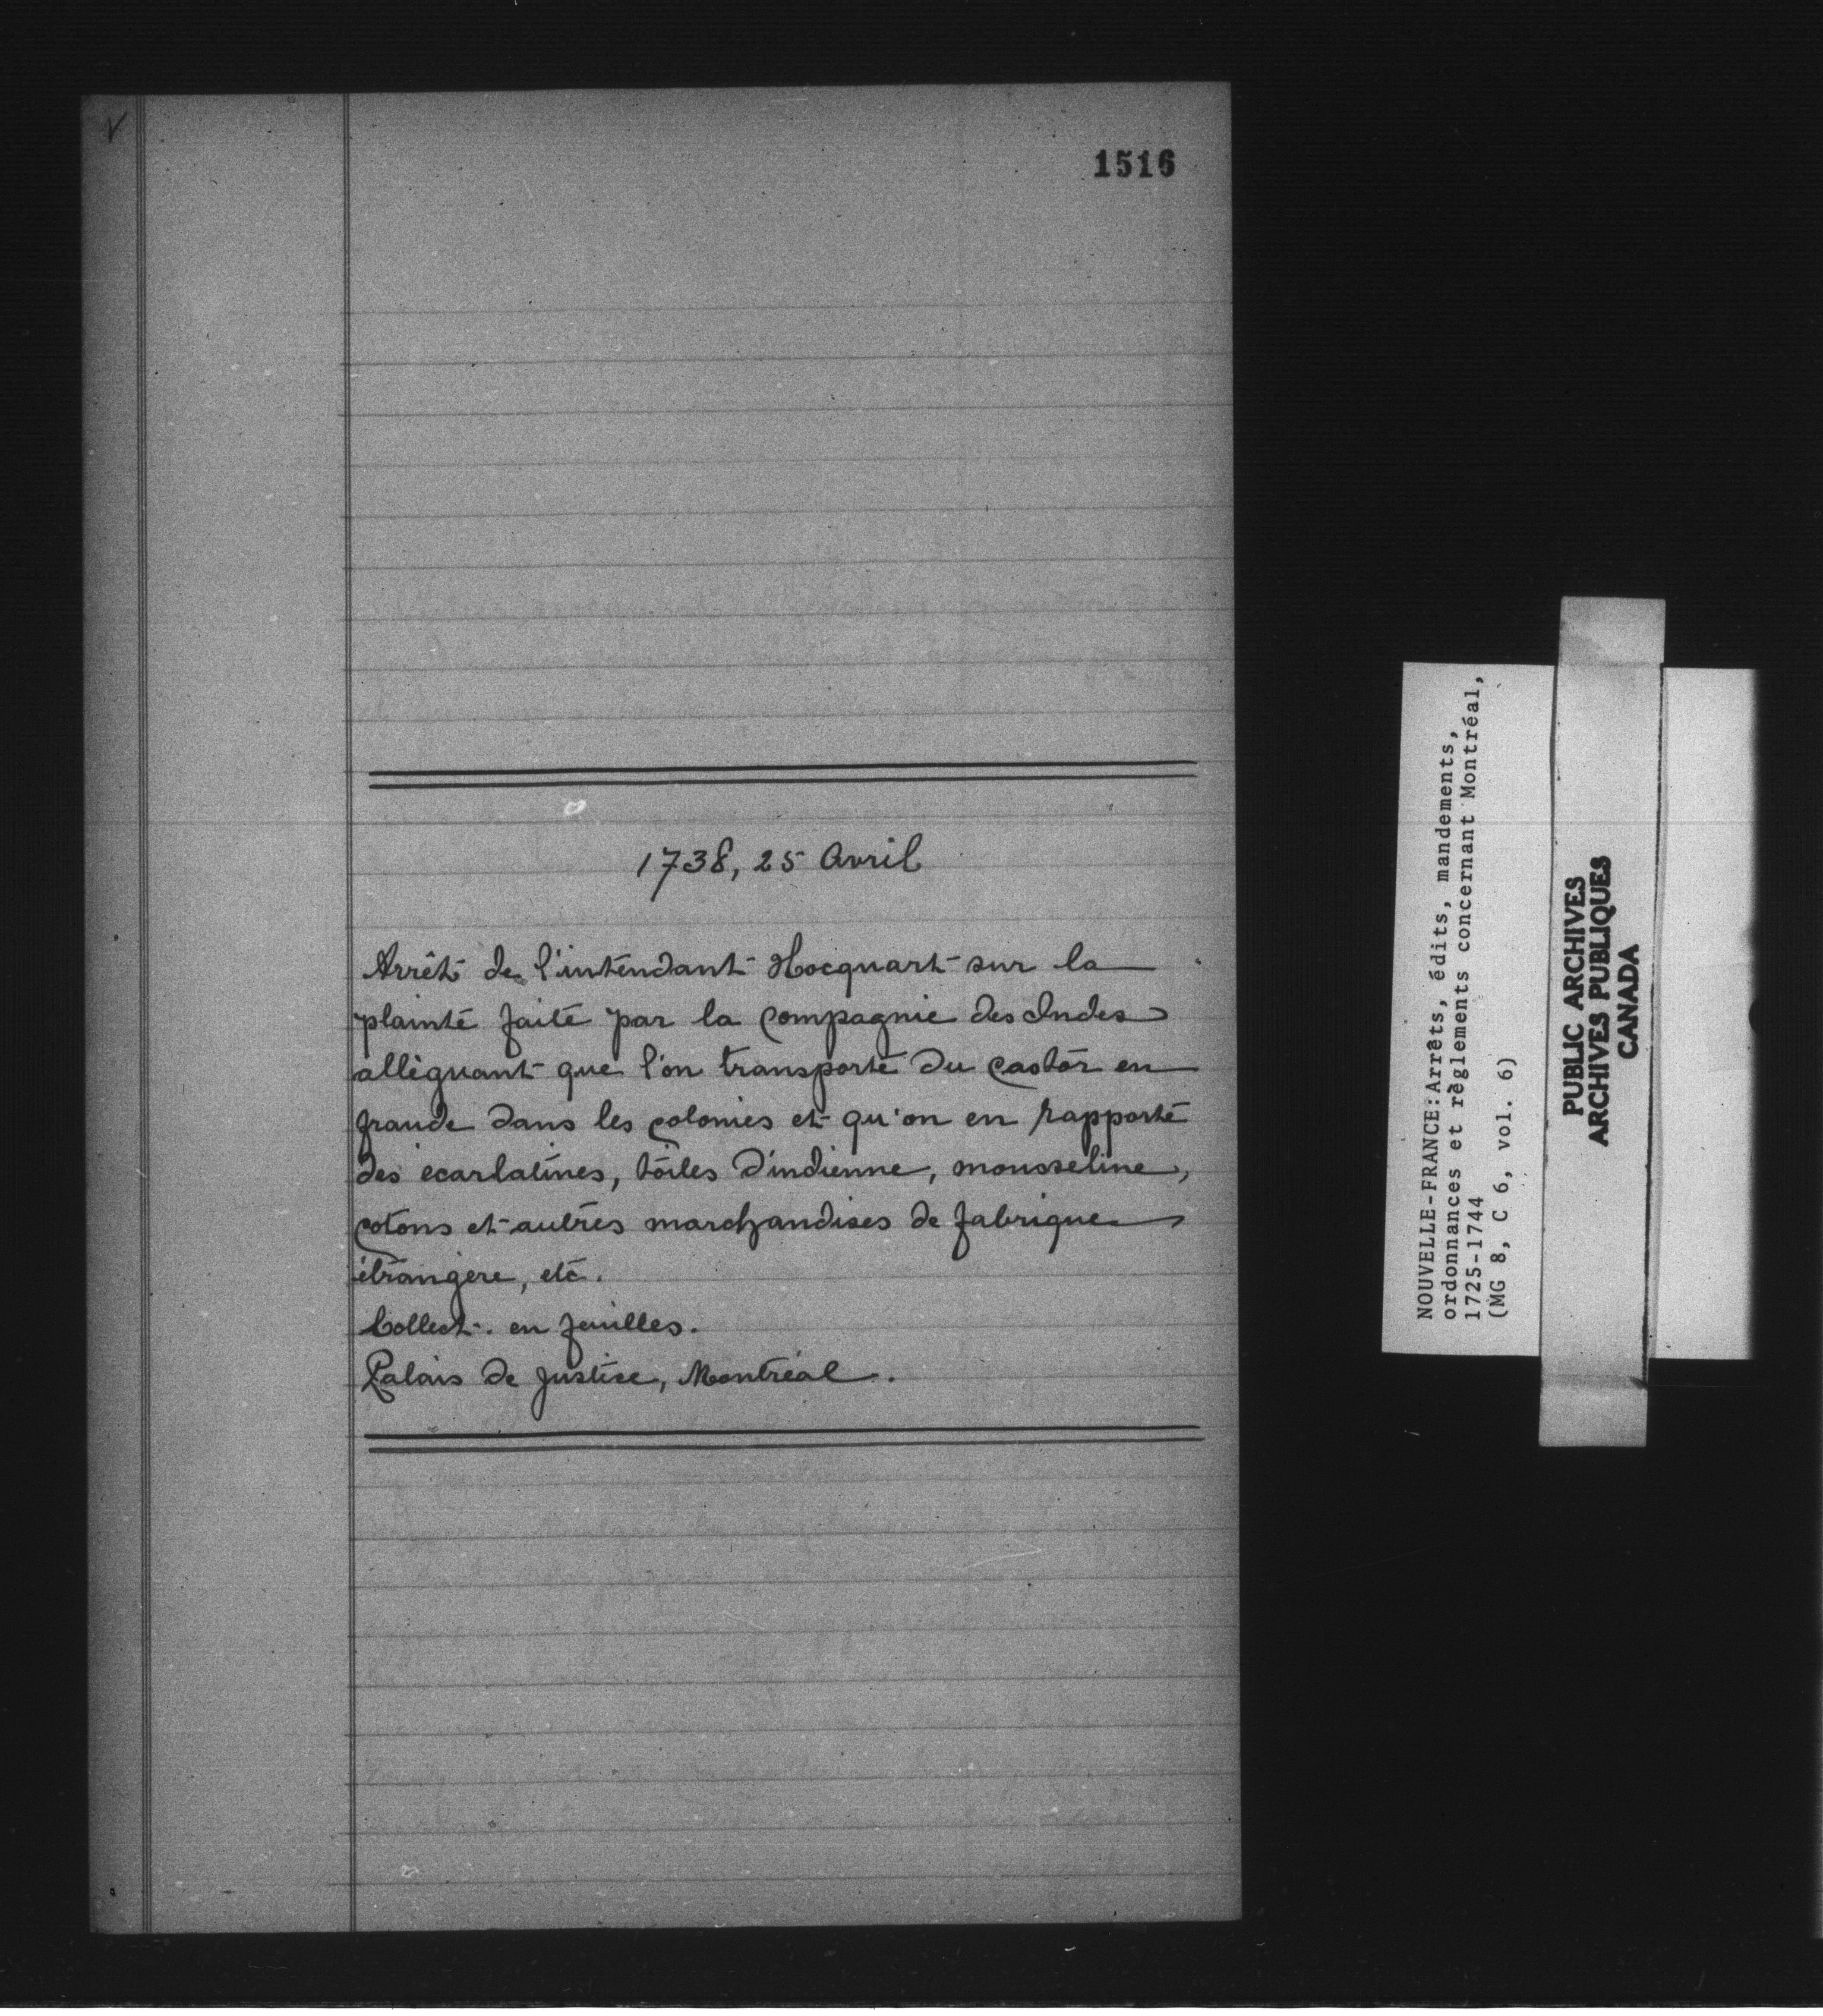 1516
1738, 25 Avril
Arrêt de l'intendant Hocquart sur la
plainte faite par la Compagnie des Indes
alléguant que l'on transporte du castor en
fraude dans les colonies et qu'on en rapporte
des écarlatines, toiles d'indienne, mousseline,
cotons et autres marchandises de fabrique
étrangère, etc.
Collect. en feuilles.
Palais de Justice, Montréal.
NOUVELLE-FRANCE:Arrêts, édits, mandements,
ordonnances et règlements concernant Montréal,
1725-1744
(MG 8, C 6, vol. 6)
PUBLIC ARCHIVES
ARCHIVES PUBLIQUES
CANADA